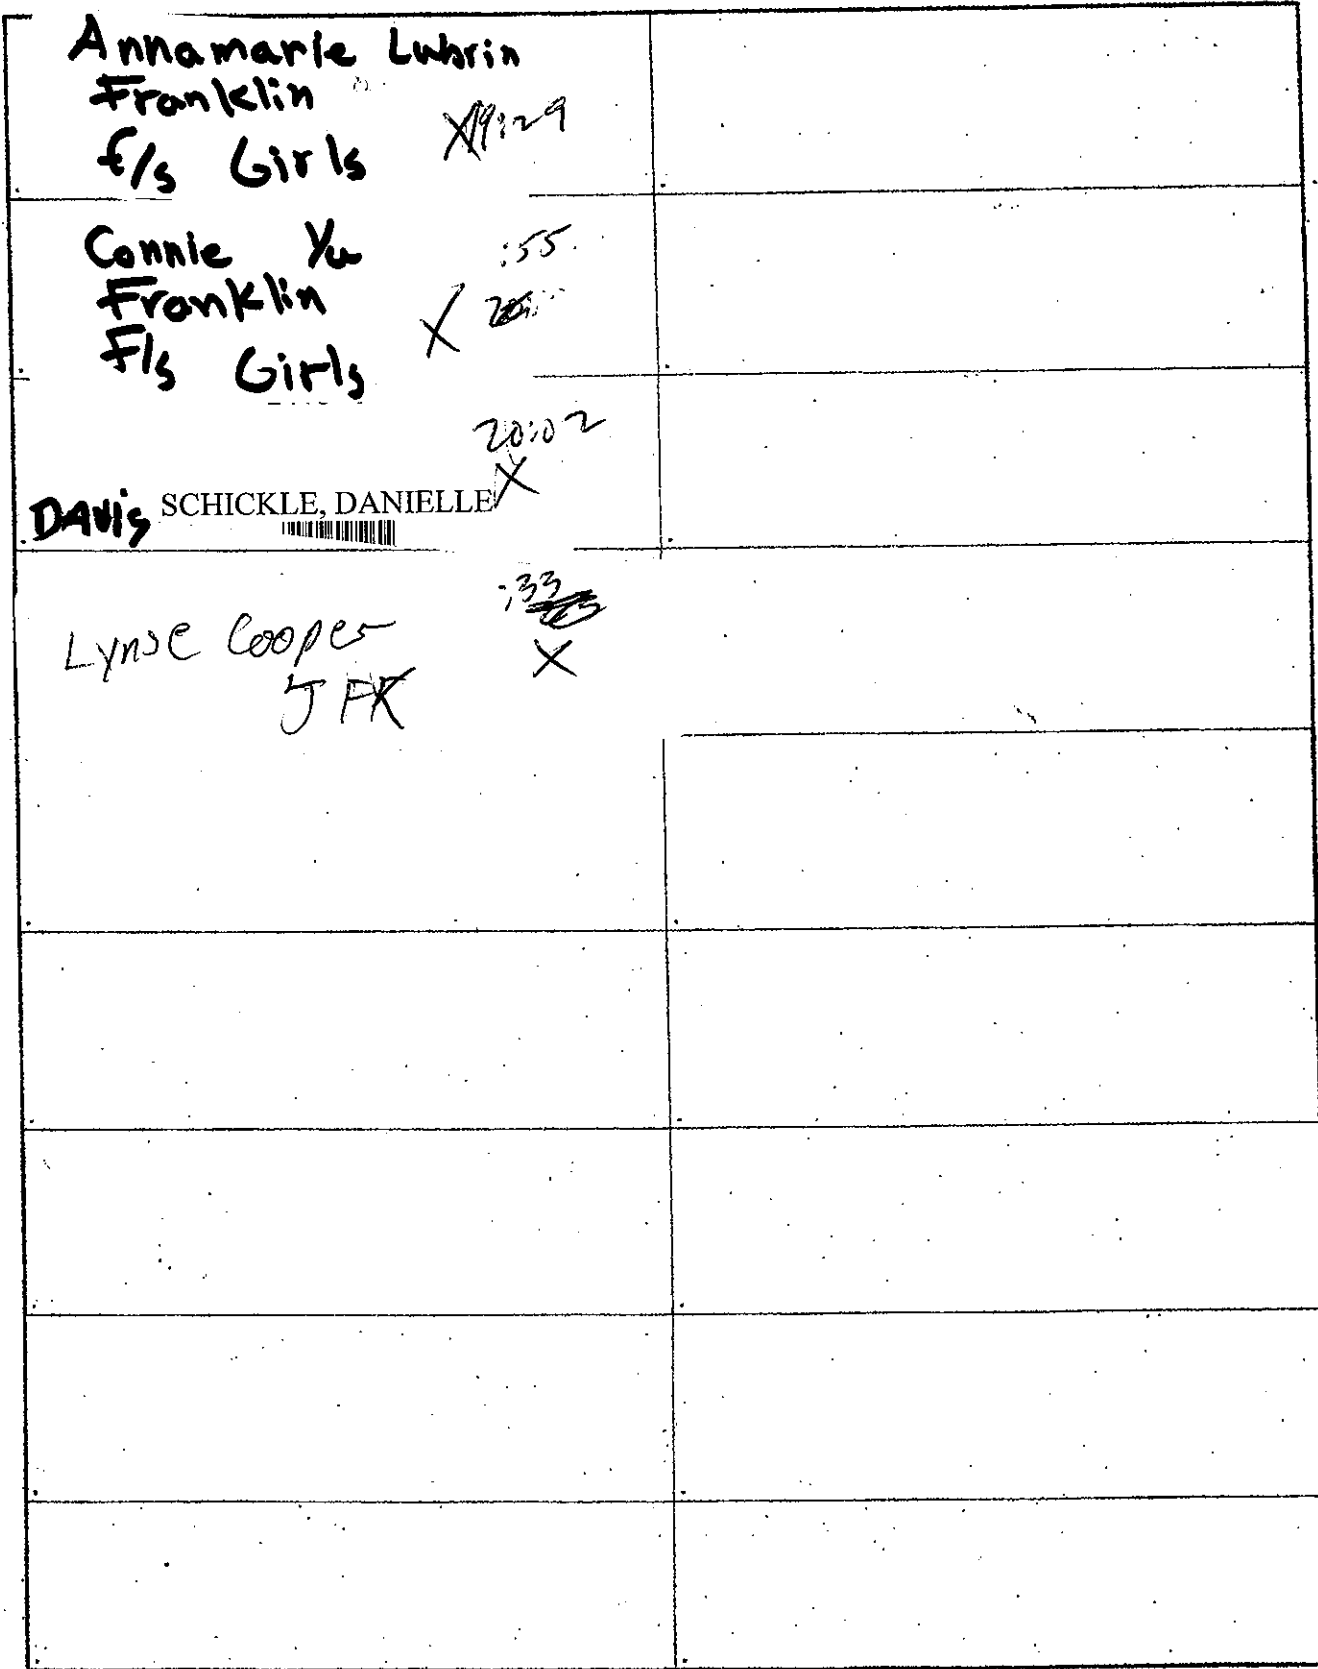 Annamarie Lubrin
Franklin
f/s Girls X 19:29
Connie Yu :55
Franklin X
F/s Girls
20:02
X
DAVIS SCHICKLE, DANIELLE
:33
Lynse Cooper X
JFK